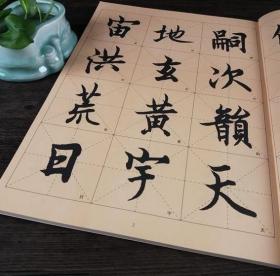 嗣次韻天
地玄黄宇
宙洪荒日